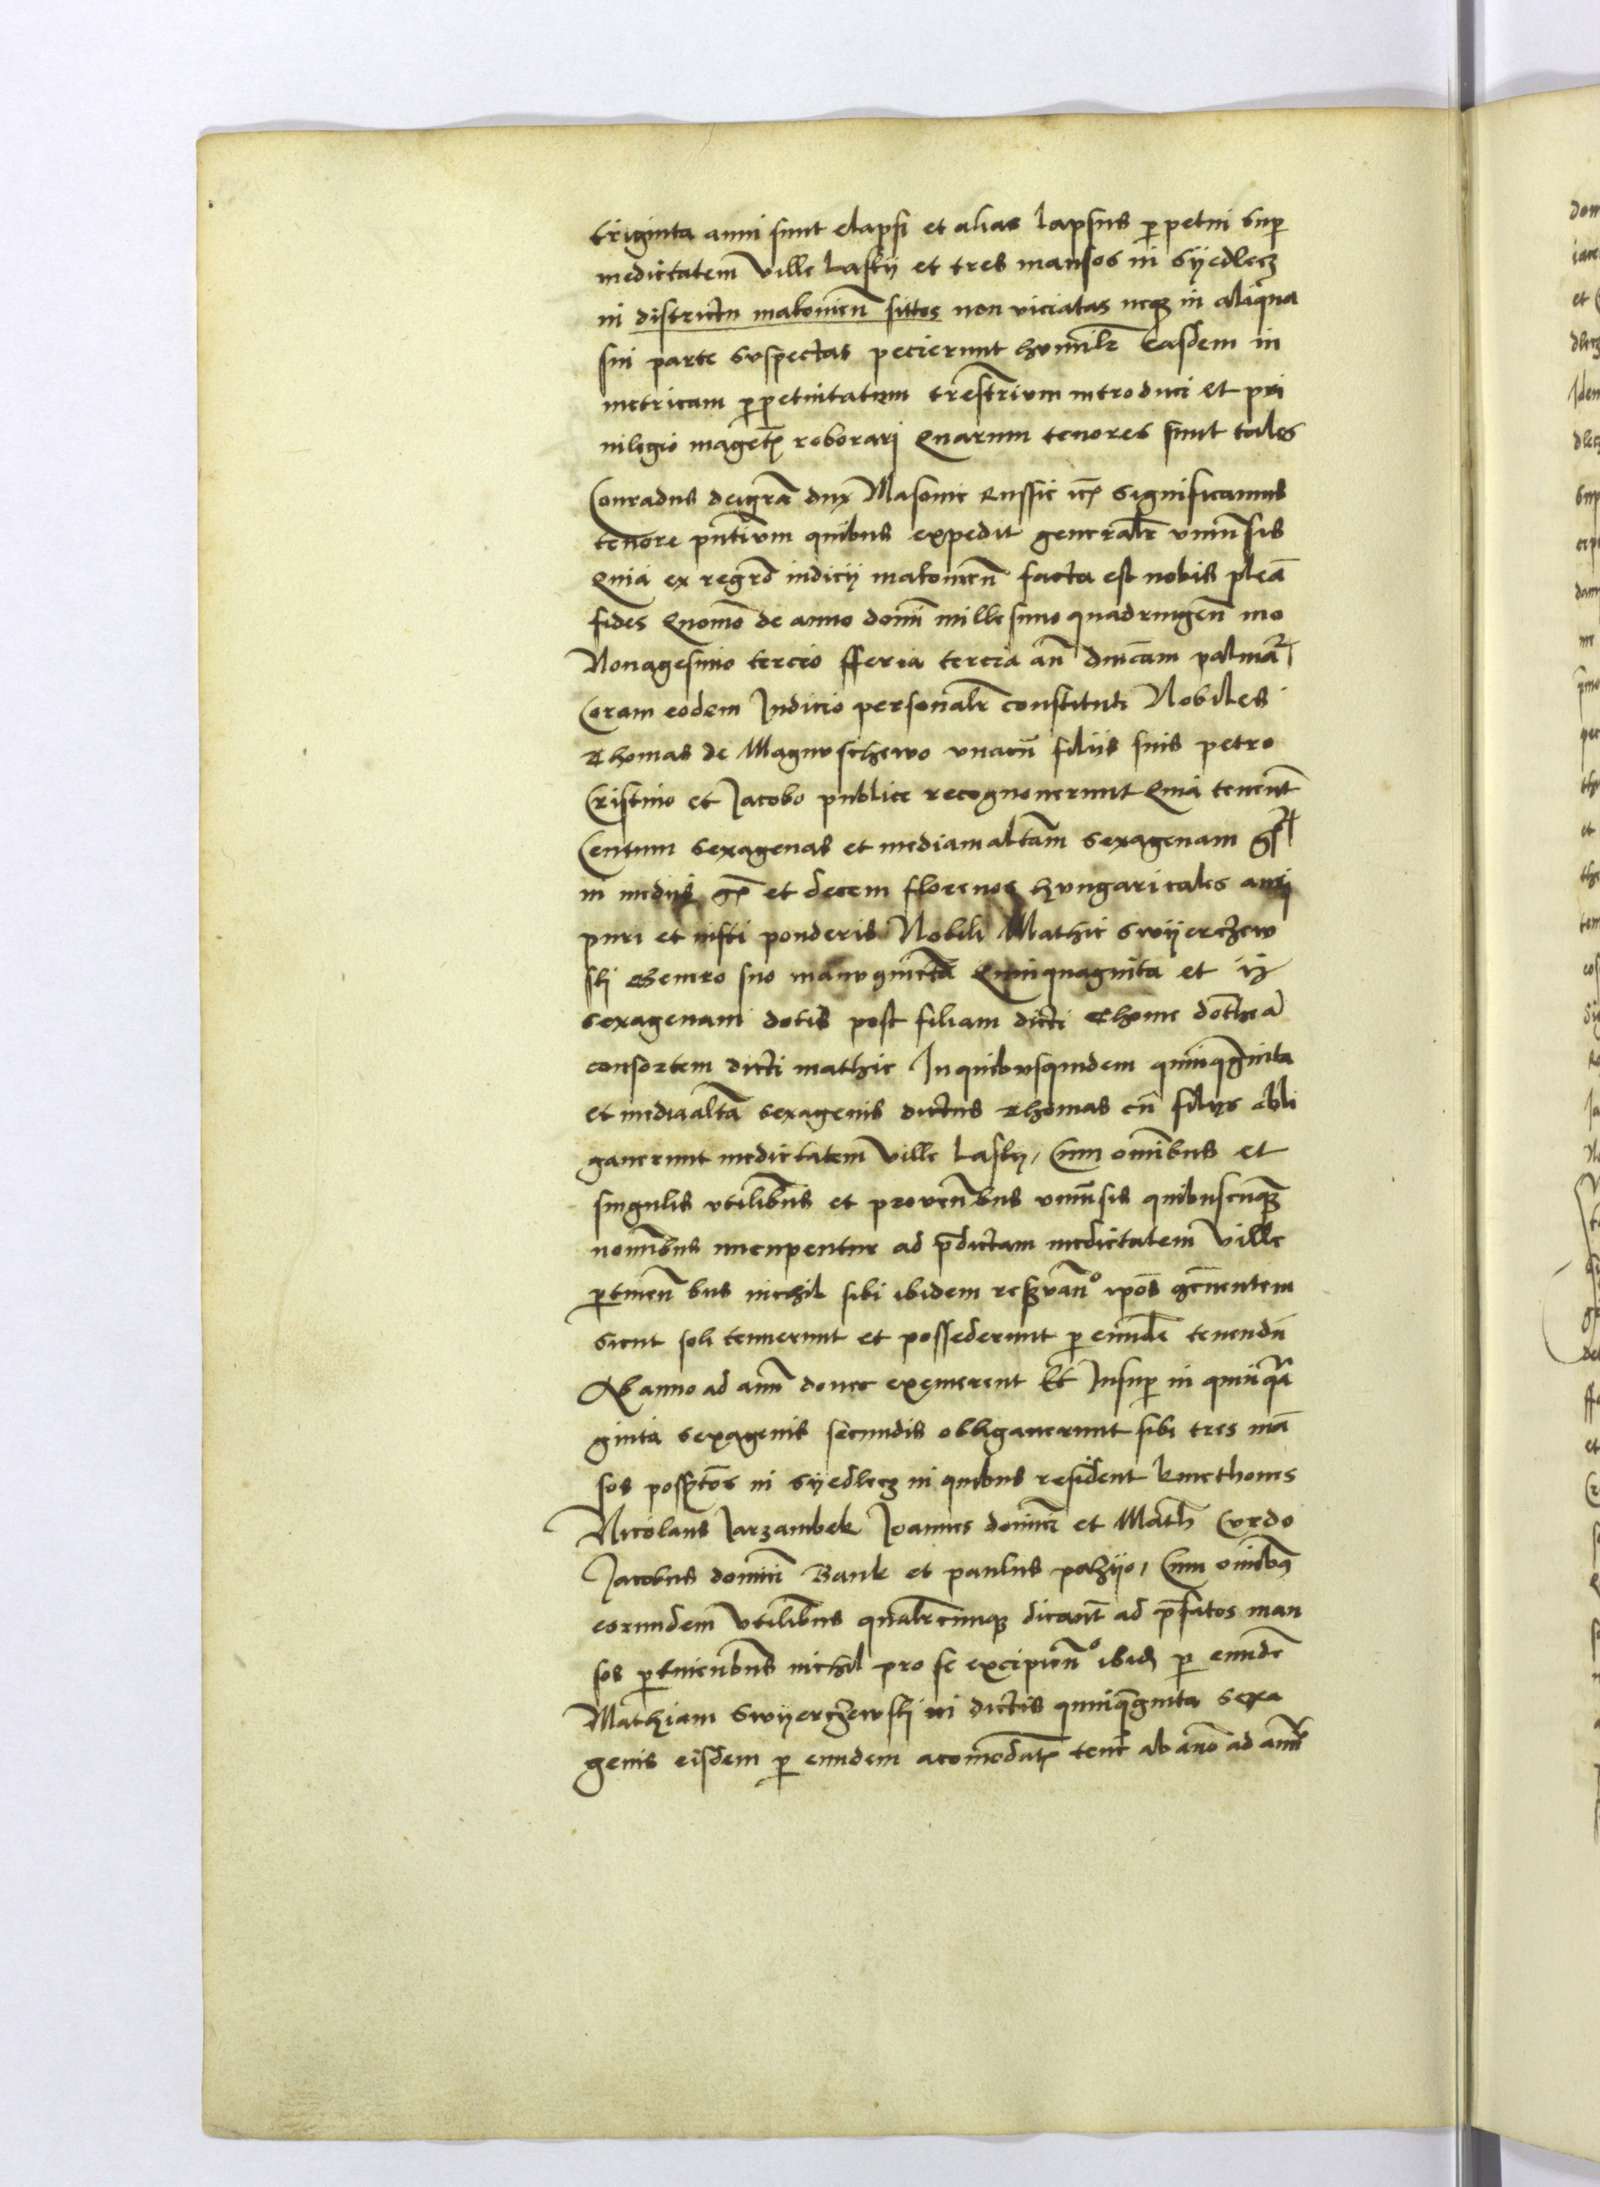 triginta anni sunt elapsi et alias lapsus perpetui sup
medietatem ville Lasky et tres mansos in Syedlecz
in districtu makovien sittos non viciatas neq in aliqua
sui parte suspectas pecierunt humilr Easdem in
metricam perpetuitatum trestrium introduci et pri
uilegio roborari Quarum tenores sunt tales
Conradus dei gra dux Masovie Russie Significamus
tenore pntium quibus expedit generalr vniu'sis
Quia ex regro iudicij makovien facta est nobis plea
fides Quomo de anno domi millesimo quadringen mo
Nonagesimo tercio fferia tercia an dnicam palmar
Coram eodem Judicio personalr constituti Nobiles
Thomas de Magnuschewo vnacu filiis suis petro
Cristino et Jacobo publice recognouerunt Quia tenent
Centum sexagenas et mediam altam sexagenam
in mediis et decem florenos hungaricales auri
puri et iusti ponderis Nobili Mathie Swyerczew
ski Genero suo manu Quinquaginta et
sexagenam dotis post filiam dicti Thome dothea
consortem dicti mathie In quibusquidem quinqginta
et media alta sexagenis dictus Thomas cu filijs obli
gauerunt medietatem ville Lasky, Cum omibus et
singulis vtilibus et provenbus vniu'sis quibuscuq
nomibus nucupentur ad predictam medietatem ville
ptinen bus nichil sibi ibidem reservan
sicut soli tenuerunt et possederunt per eunde tenendu
Ab anno ad ann donec exemerent Et Insup in quinqua
ginta sexagenis secundis obligauerunt sibi tres man
sos positos in Syedlecz in quibus resident kmethones
Nicolaus Jarzambek Joannes et Math Curdo
Jacobus Bank et paulus, Cum omibus
eorundem vtilibus qualrcunq dicant ad prefatos man
sos pertinenbus nichil pro se excipien ibid per eunde
Mathiam Swyerczewski in dictis quinqginta sexa
genis eisdem per eundem acomodatis tenen ab ano ad ann